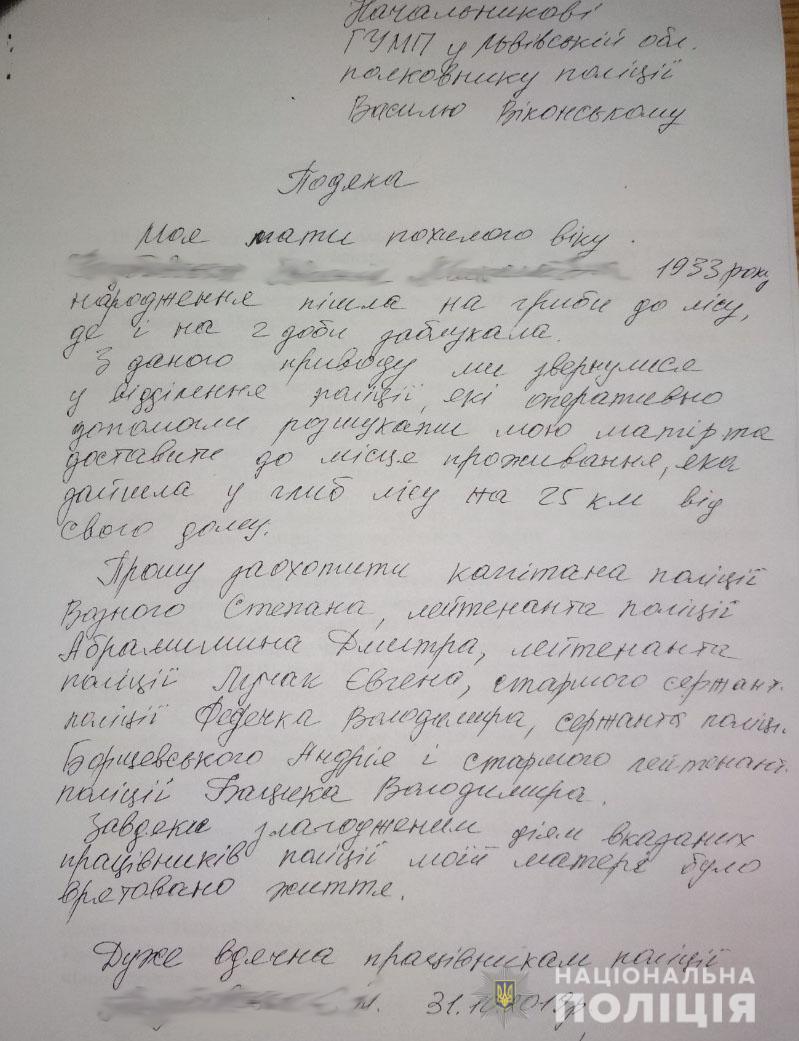 Начальникові
ГУНП у Львівській обл.
полковнику поліції
Василю Віконському
Подяка
Моя мати похилого віку
1933 року
народження пішла на гриби до лісу,
де і на 2 доби заблукала.
З даного приводу ми звернулися
у відділення поліції, які оперативно
допомогли розшукати мою матір та
доставити до місця проживання, яка
зайшла у глиб лісу на 25 км від
свого дому.
Прошу заохотити капітана поліції
Возного Степана, лейтенанта поліції
Дмитра, лейтенанта
поліції Лучак Євгена, старшого сержант.
поліції Федечка Володимира, сержанта поліції.
Борщевського Андрія і старшого лейтенант.
поліції Бацика Володимира.
Завдяки злагодженим діям вказаних
працівників поліції моїй матері було
врятовано життя.
Дуже вдячна працівникам поліції
31.
НАЦІОНАЛЬНА
ПОЛІЦІЯ